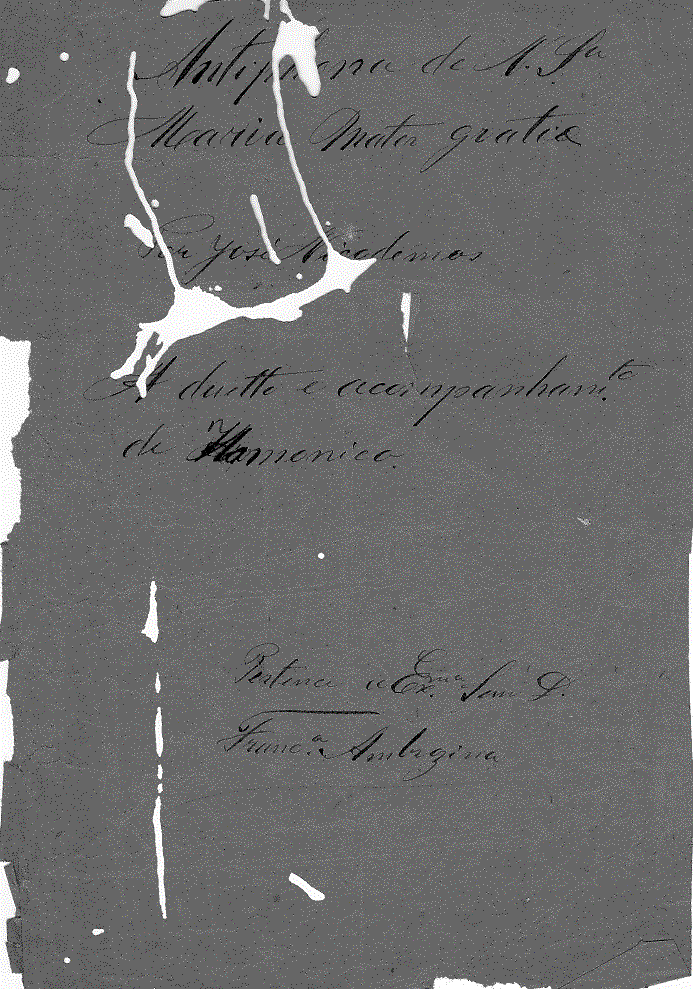 Antiphona de N. Sra
Maria Mater gratiæ
Por José Nicodemos
A duetto e acompanham.to
de Harmonica
Pertence a Ex.ma Snrª D.
Franc.ª Ambrozina